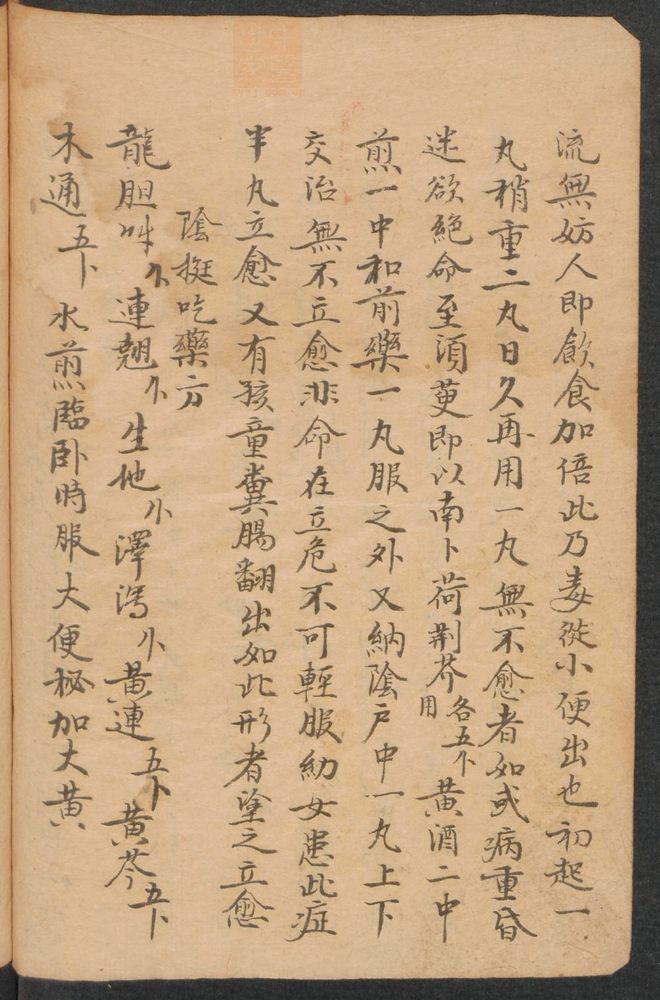 流無妨人即飲食加倍此乃毒從小便出也初起一
丸稍重二丸日久再用一丸無不愈者如或病重昏
迷欲絕命至須萸即以南卜荷荆芥各五卜用黃酒二中
煎一中和前藥一丸服之外又納陰戶中一丸上下
交治無不立愈非命在立危不可輕服幼女患此症
半丸立愈又有孩童糞腸翻出如此形者塗之立愈
陰挺吃藥方
龍胆叶 連翹 生地 澤瀉 黃連五卜 黃芩五卜
木通五卜 水煎臨卧時服大便秘加大黃